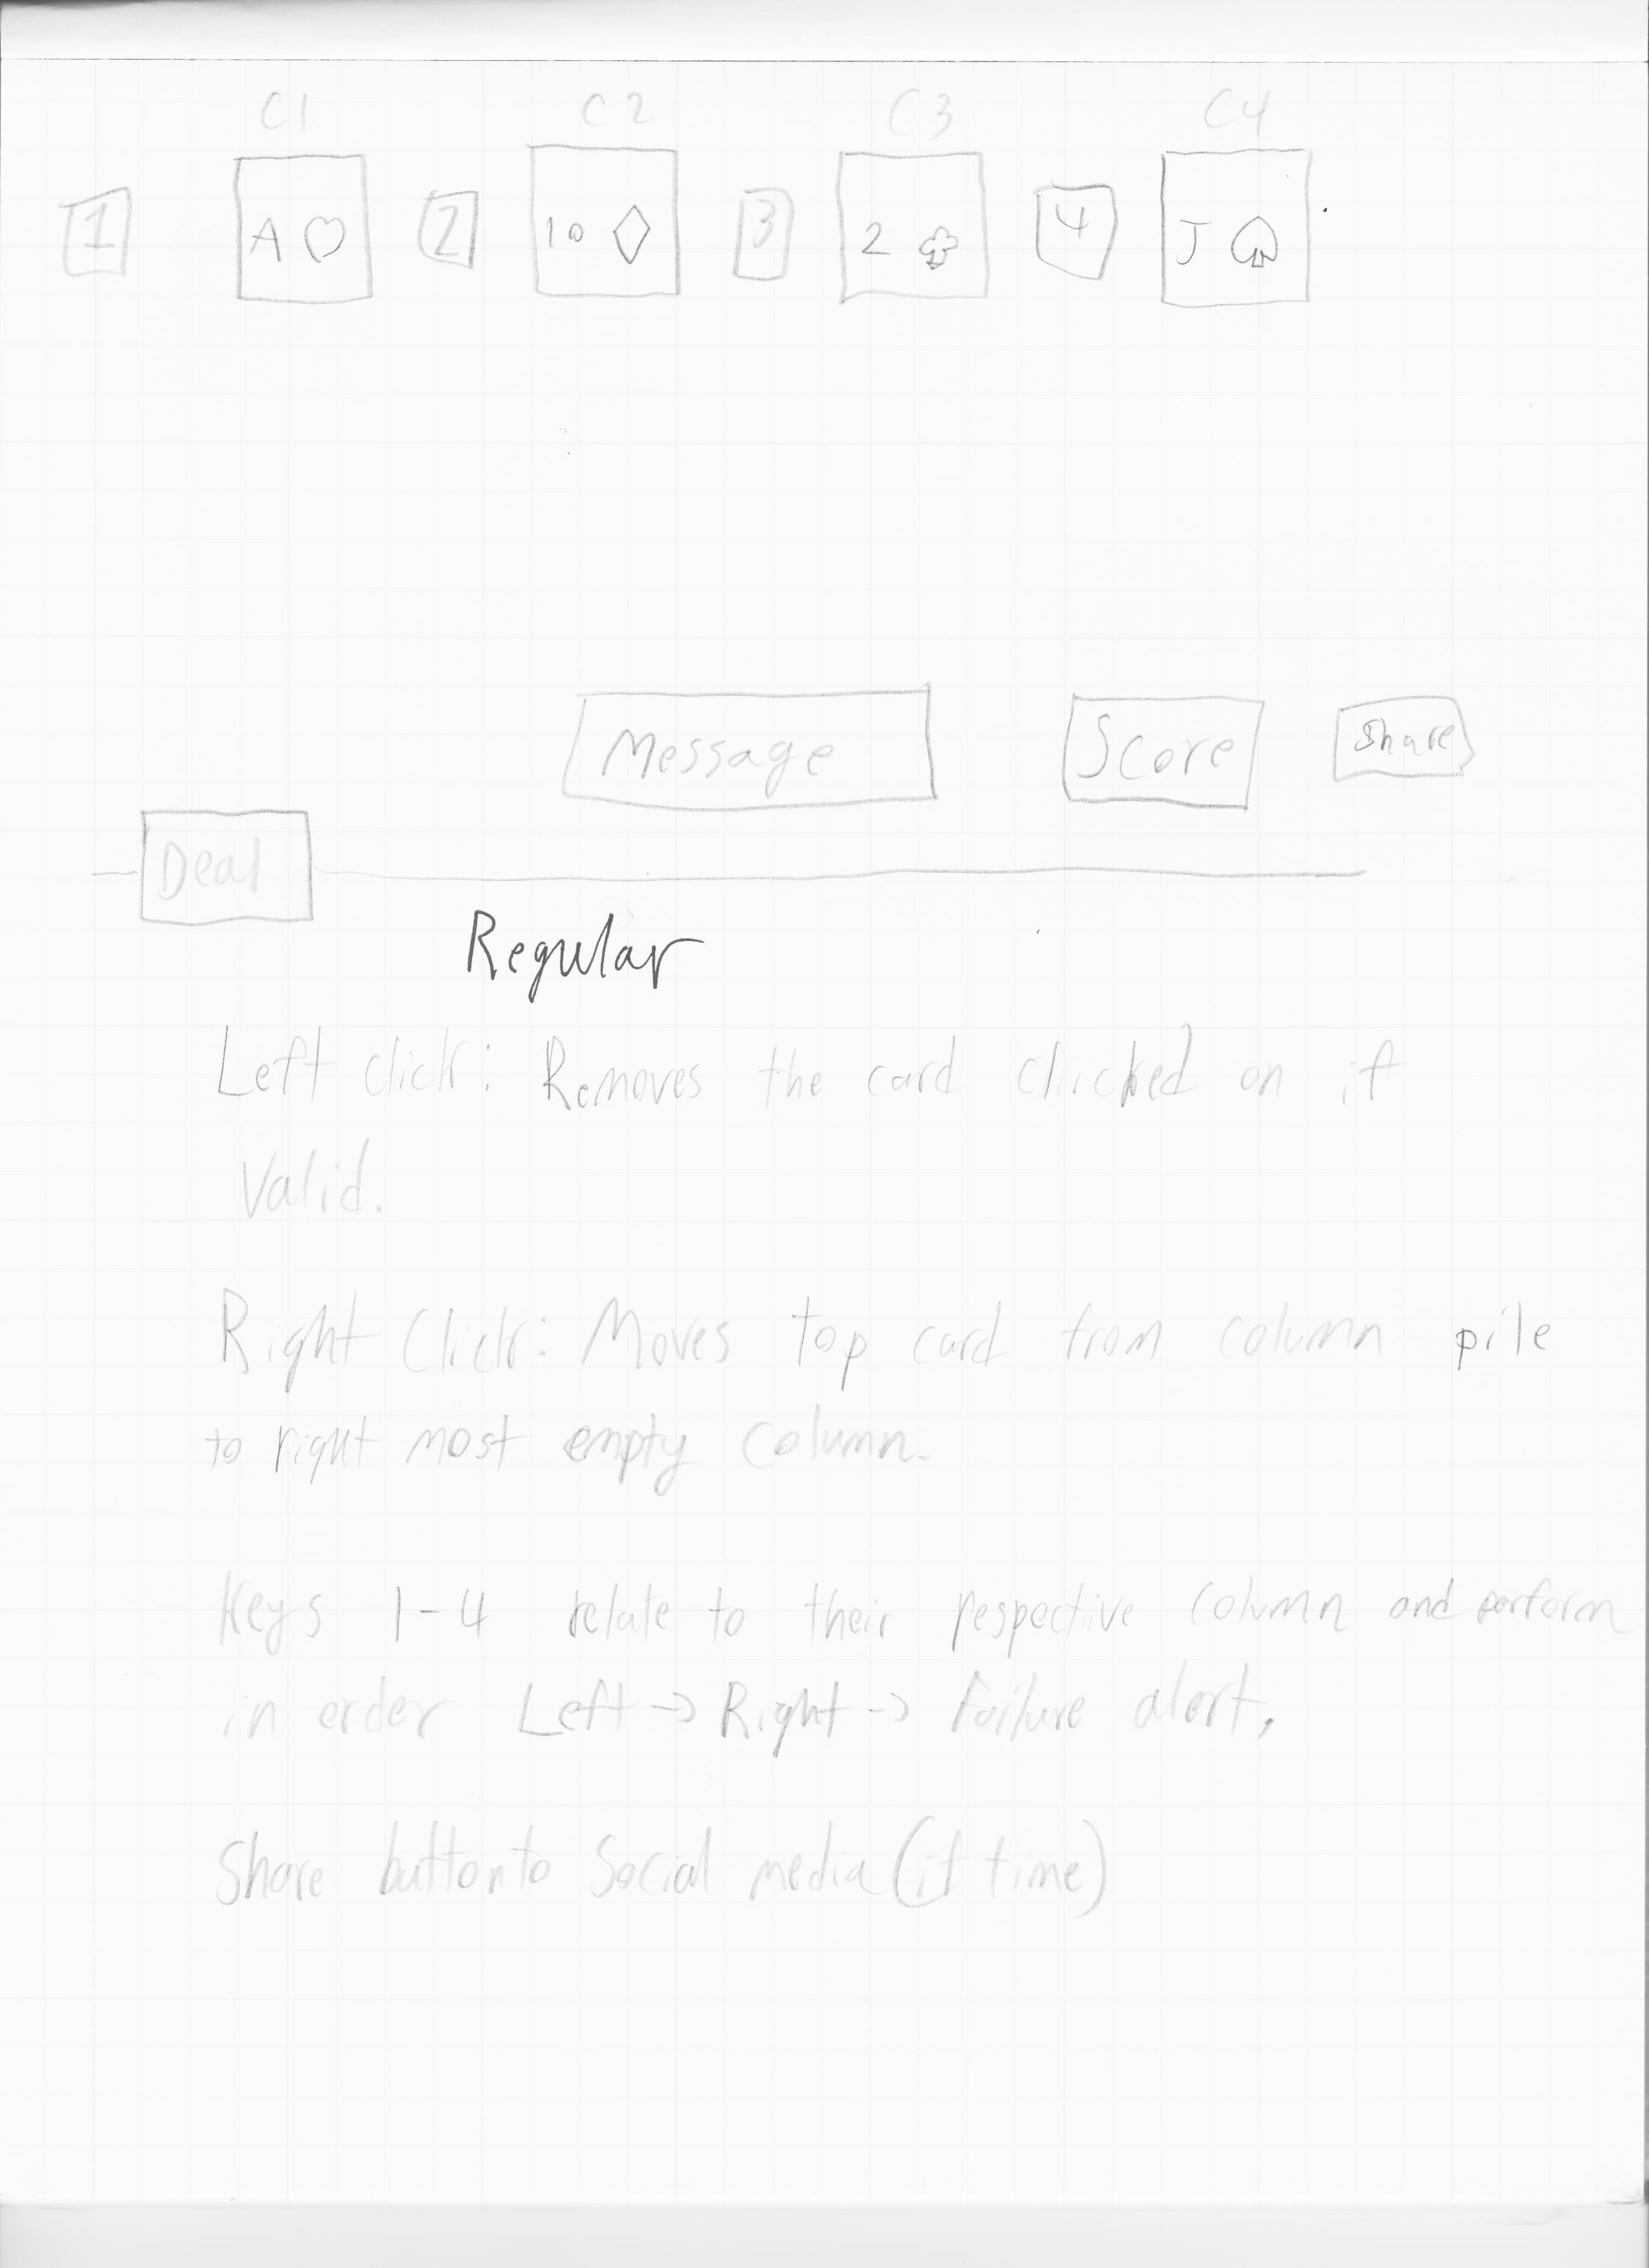 C1 C2 C3 C4
1 A♡ 2 10♢ 3 2♧ 4 J♤
Message Score Share
Deal
Regular
Left click: Removes the card clicked on if
Valid.
Right Click: Moves top card from column pile
to right most empty column.
Keys 1-4 relate to their respective column and perform
in order Left → Right → Failure alert.
Share button to Social media (if time)